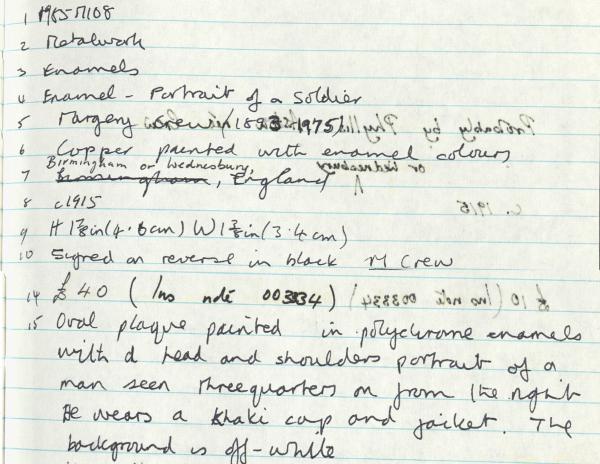 1 1985M108
2 Metalwork
3 Enamels
4 Enamel - Portrait of a Soldier
5 Margery Crew /1893-1975/
6 Copper painted with enamel colours
Birmingham or Wednesbury
7 Birmingham, England
8 c1915
9 H 1⅞in (4.6cm) W 1⅜in (3.4cm)
10 Signed on reverse in black M Crew
14 £40 (Ins note 003334)
15 Oval plaque painted in polychrome enamels
with a head and shoulders portrait of a
man seen threequarters on from the right
He wears a khaki cap and jacket. The
background is off-white